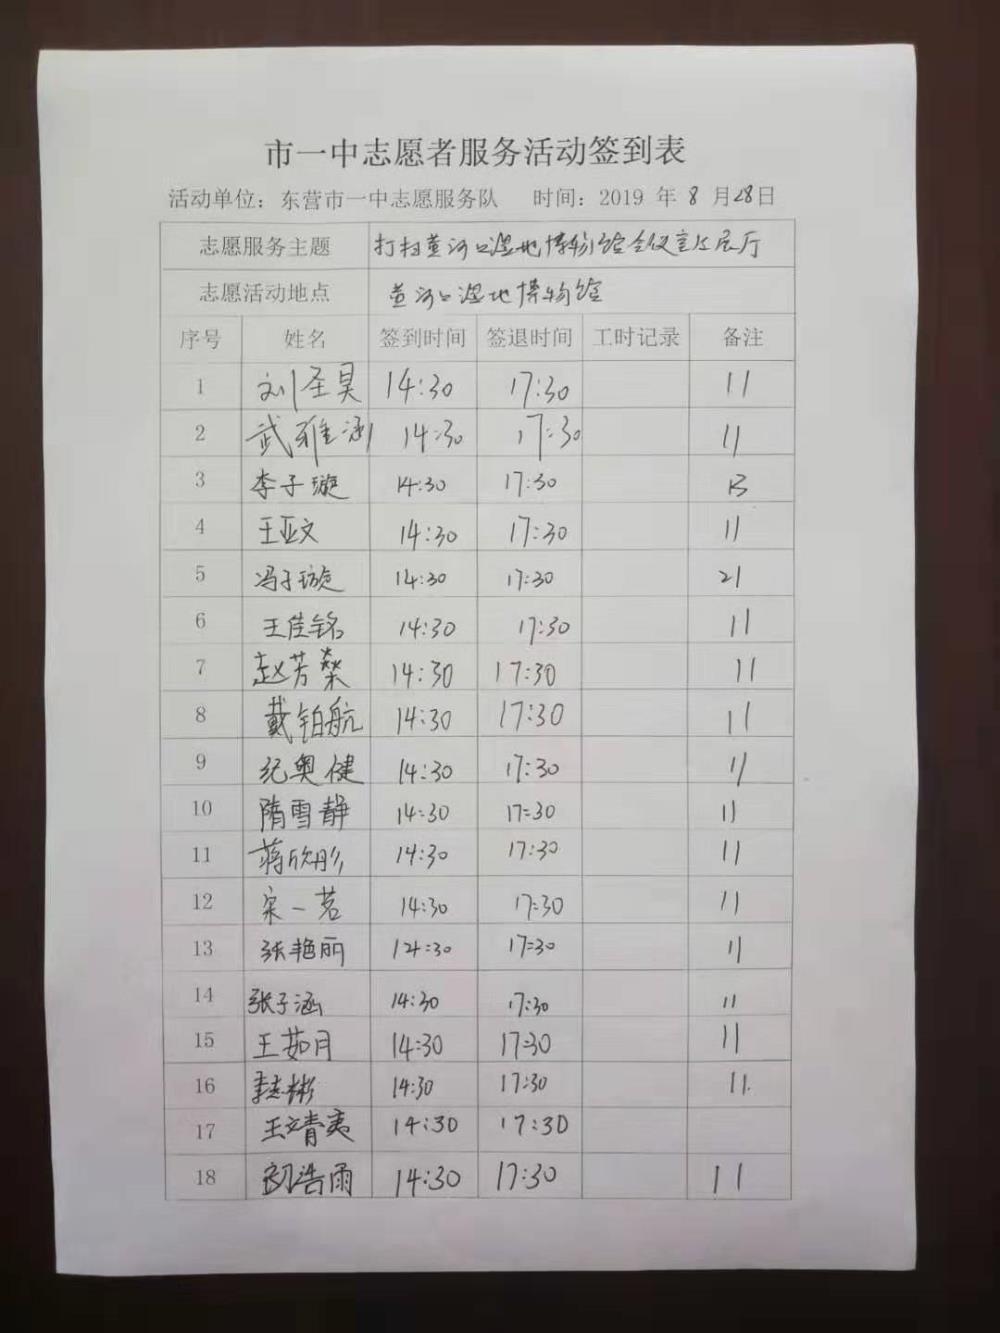 市一中志愿者服务活动签到表
活动单位：东营市一中志愿服务队 时间：2019 年 8 月28日
志愿服务主题 打扫黄河口湿地博物馆会议室及展厅
志愿活动地点 黄河口湿地博物馆
序号 姓名 签到时间 签退时间 工时记录 备注
1 刘圣昊 14:30 17:30 11
2 武雅涵 14:30 17:30 11
3 李子璇 14:30 17:30 13
4 王亚文 14:30 17:30 11
5 冯子璇 14:30 17:30 21
6 王佳铭 14:30 17:30 11
7 赵芳燊 14:30 17:30 11
8 戴铂航 14:30 17:30 11
9 纪奥健 14:30 17:30 11
10 隋雪静 14:30 17:30 11
11 蒋欣彤 14:30 17:30 11
12 宋一茗 14:30 17:30 11
13 张艳丽 14:30 17:30 11
14 张子涵 14:30 17:30 11
15 王茹月 14:30 17:30 11
16 彬 14:30 17:30 11
17 王 14:30 17:30
18 浩雨 14:30 17:30 11